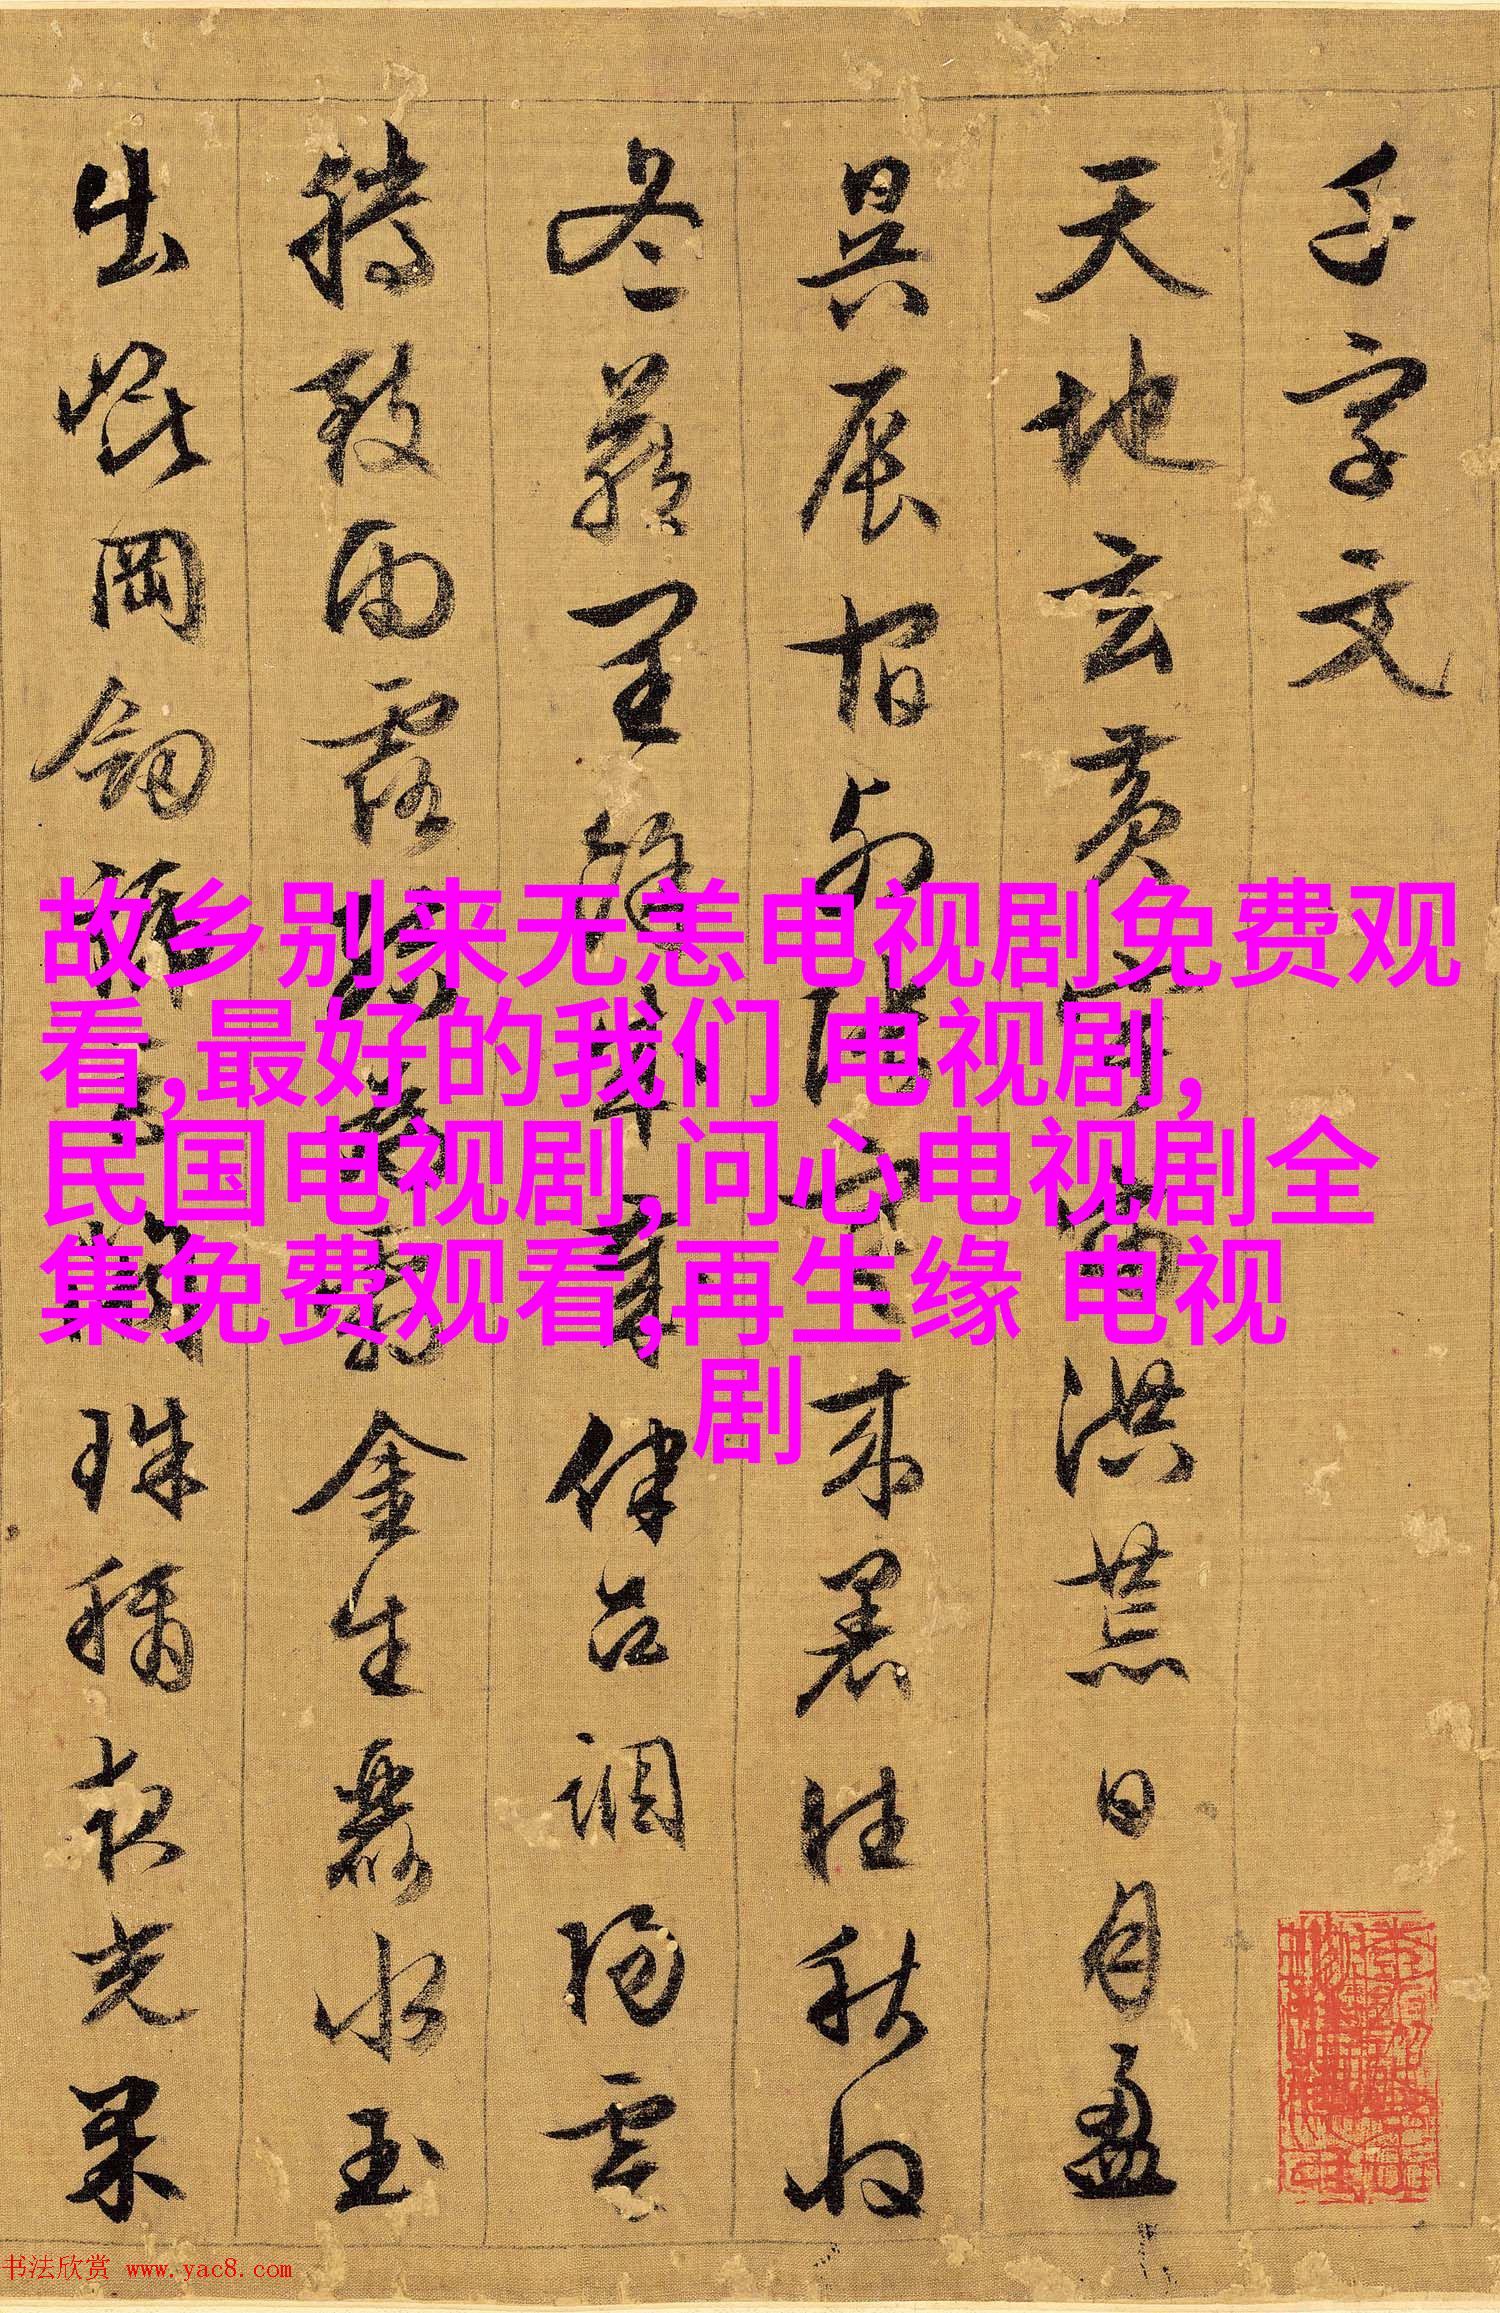 千字文
天地玄黃宇宙洪荒日月盈
昃辰宿列張寒来暑往秋收
冬蔵閏餘成歲律吕調陽雲
騰致雨露結為霜金生麗水玉
出崐岡劒號巨闕珠稱夜光果
故乡别来无恙电视剧免费观
看,最好的我们 电视剧,
民国电视剧,问心电视剧全
集免费观看,再生缘 电视
剧
书法欣赏 www.yac8.com